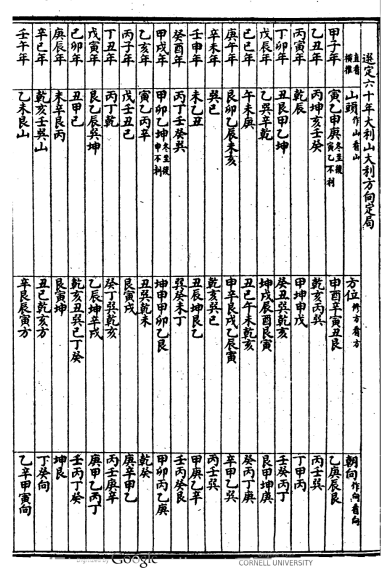 選定六十年大利山大利方向定局
直看橫推 山頭作山看山 方位修方看方 朝向作向看向
甲子年 寅乙甲庚冬至後寅乙不利 申酉辛寅丑艮 乙庚辰艮
乙丑年 丙坤亥壬癸 乾亥丙巽 丙壬巽
丙寅年 乾辰 甲坤甲戌 丁甲丙
丁卯年 丑艮甲乙坤 癸丑巽乾亥 壬癸丙丁
戊辰年 乙巽辛乾 坤戌辰酉艮寅 艮甲坤庚
己巳年 午未庚 丑巳午未乾亥 癸丙丁庚
庚午年 艮卯乙辰未亥 申辛艮戌乙辰寅 辛甲乙巽
辛未年 巽巳 乾亥巽巳 丙壬巽
壬申年 未乙丑 丑辰坤艮乙 甲庚乙辛
癸酉年 丙丁壬癸巽 巽癸未丁 壬丙癸艮
甲戌年 甲卯乙坤冬至後申不利 坤申甲卯乙艮 甲卯丙乙庚
乙亥年 寅乙丙辛 丑巽乾未 乾癸
丙子年 戊壬丑巳 艮寅戌 庚辛甲乙
丁丑年 丙丁乾 癸丁巽乾亥 丙壬庚辛
戊寅年 艮乙辰巽坤 乙辰坤辛戌 庚甲乙丙丁
己卯年 丑甲巳 乾亥丑巽巳丁癸 壬丙丁癸
庚辰年 未辛艮丙 艮寅坤 坤艮
辛巳年 乾亥壬巽山 丑巳乾亥方 丁癸向
壬午年 乙未艮山 辛艮辰寅方 乙辛甲寅向
Google
CORNELL UNIVERSITY